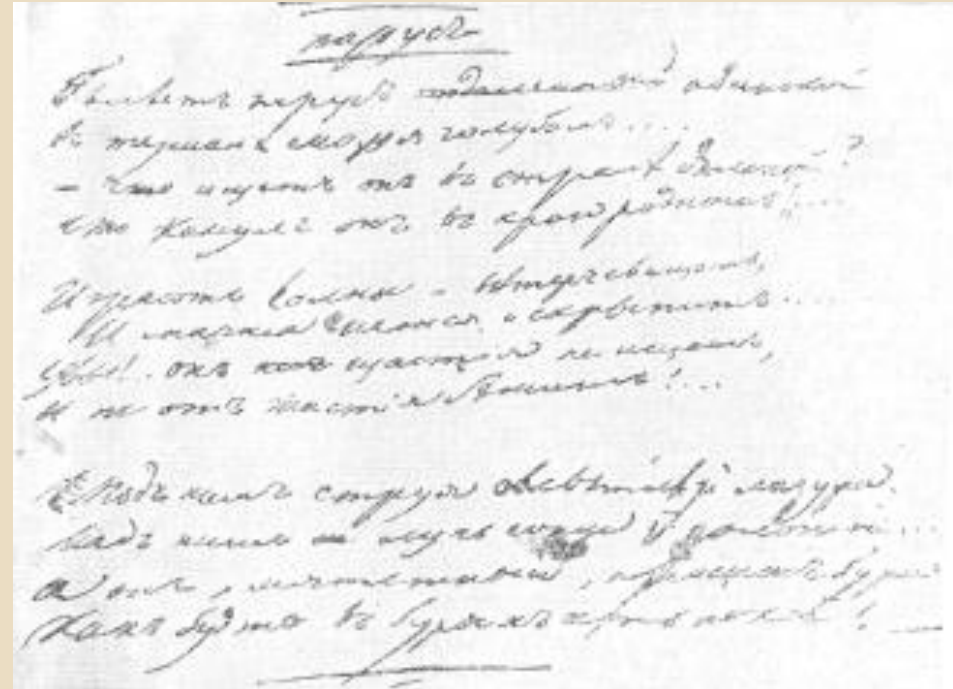 Парусъ
Бѣлѣетъ парусъ одинокой
Въ туманѣ моря голубомъ....
– Что ищетъ онъ въ странѣ далекой?
Что кинулъ онъ въ краю родномъ?...
Играютъ волны – вѣтеръ свищетъ,
И мачта гнется и скрыпитъ...
Увы! онъ щастія не ищетъ,
И не отъ щастія бѣжитъ!...
Подъ нимъ струя свѣтлѣй лазури
Надъ нимъ лучь солнца золотой...
А онъ, мятежный, проситъ бури
Какъ будто въ буряхъ есть покой!